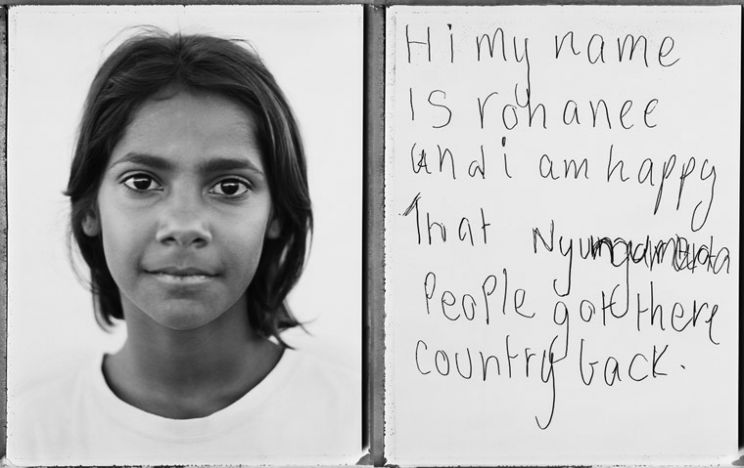 Hi my name
IS rohanee
and i am happy
That
People gott there
country back.